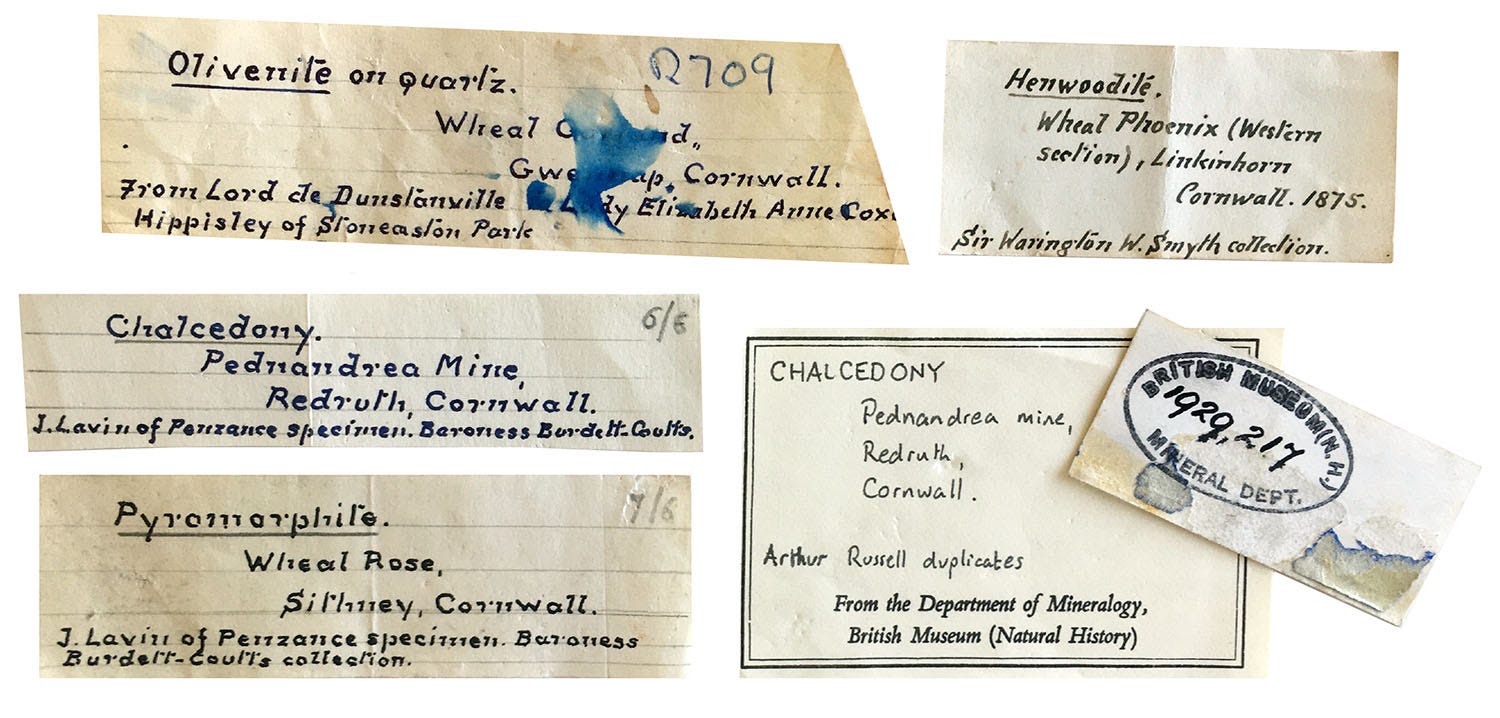 Olivenite on quartz.
R709
Wheal
Cornwall.
From Lord de Dunstanville Elizabeth Anne Cox
Hippisley of Stoneaston Park
Henwoodite.
Wheal Phoenix (Western
section), Linkinhorn
Cornwall. 1875.
Sir Warington W. Smyth collection.
Chalcedony.
6/6
Pednandrea Mine,
Redruth, Cornwall.
J. Lavin of Penzance specimen. Baroness Burdett-Coutts.
Pyromorphite.
7/6
Wheal Rose,
Sithney, Cornwall.
J. Lavin of Penzance specimen. Baroness
Burdett-Coutts collection.
CHALCEDONY
Pednandrea mine,
Redruth,
Cornwall.
Arthur Russell duplicates
From the Department of Mineralogy,
British Museum (Natural History)
BRITISH MUSEUM (N.H.)
1929,217
MINERAL DEPT.